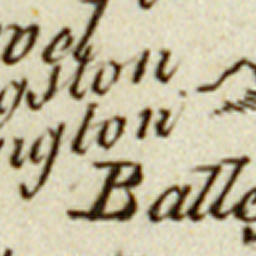 wel
gston
ngton
Balle